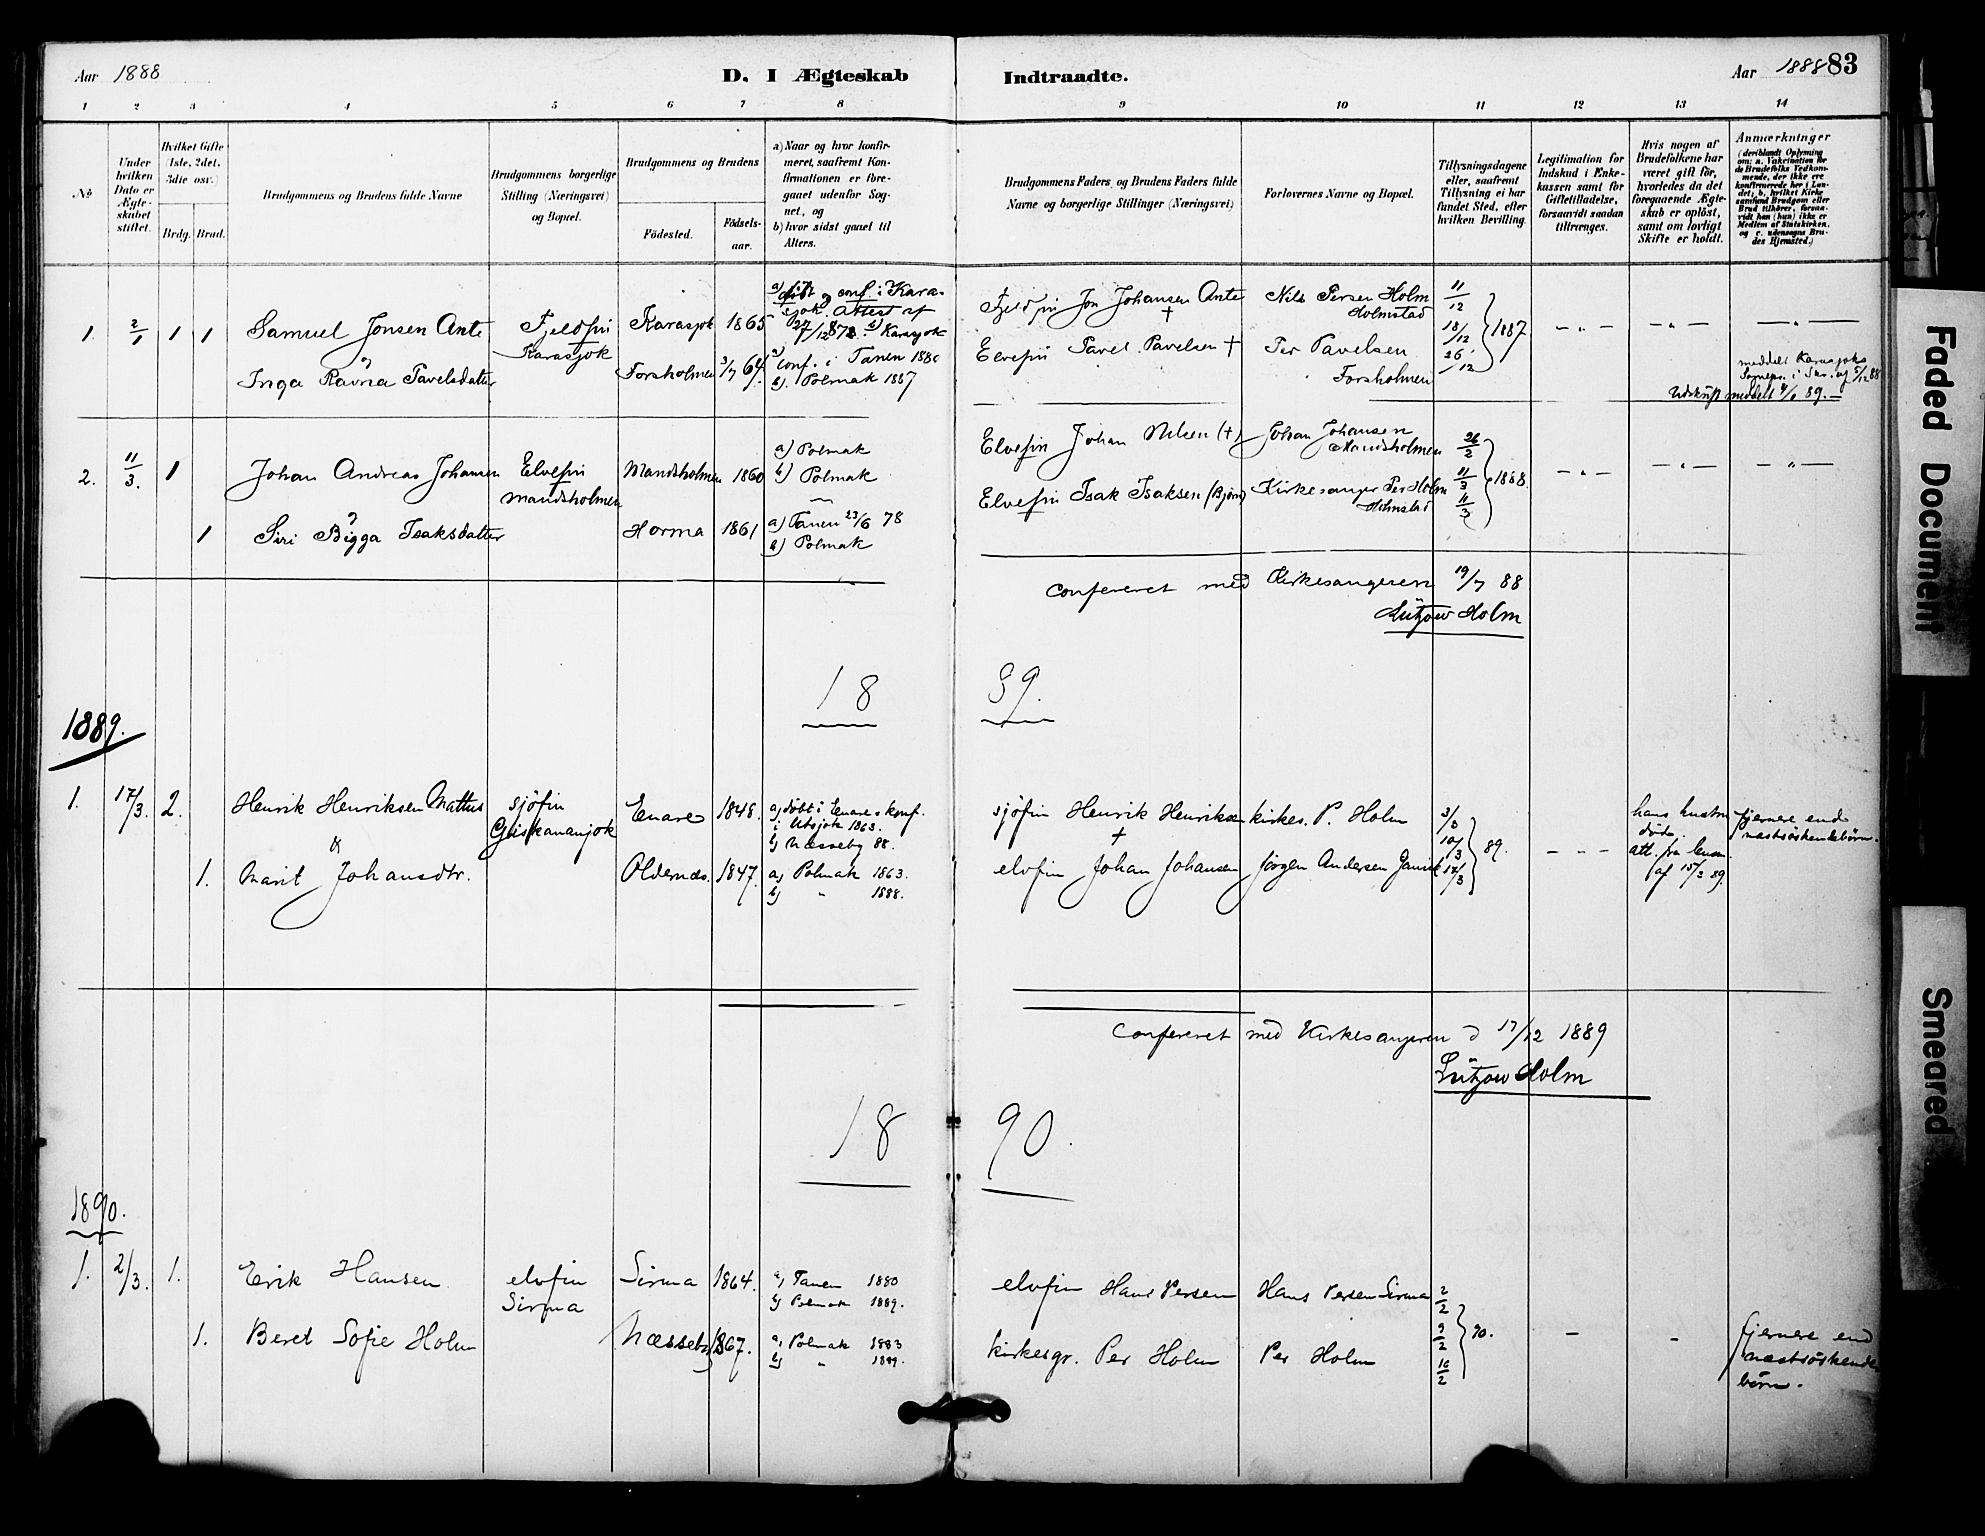 Aar 1888
D. I Ægteskab
Indtraadte.
Aar 1888 83
1 2 3 4 5 6 7 8 9 10 11 12 13 14
No
Under hvilken Dato er Ægteskabet stiftet.
Hvilket Gifte (1ste, 2det, 3die osv.)
Brdg. Brud.
Brudgommens og Brudens fulde Navne
Brudgommens borgerlige Stilling (Næringsvei) og Bopæl.
Brudgommens og Brudens
Födested.
Födselsaar.
a) Naar og hvor konfirmeret, saafremt Konfirmationen er foregaaet udenfor Sognet, og
b) hvor sidst gaaet til Alters.
Brudgommens Faders og Brudens Faders fulde Navne og borgerlige Stillinger (Næringsvei)
Forlovernes Navne og Bopæl.
Tillysningsdagene eller, saafremt Tillysning ei har fundet Sted, efter hvilken Bevilling.
Legitimation for Indskud i Enkekassen samt for Giftetilladelse, forsaavidt saadan tiltrænges.
Hvis nogen af Brudefolkene har været gift för, hvorledes da det foregaaende Ægteskab er oplöst, samt om lovligt Skifte er holdt.
Anmærkninger
(deriblandt Oplysning om: a. Vakcination for de Brudefolks Vedkommende, der ikke ere konfirmerede her i Landet; b. hvilket Kirkesamfund Brudgom eller Brud tilhörer, forsaavidt han (hun) ikke er Medlem af Statskirken, og c. udensogns Brudes Hjemsted.)
1. 2/1 1 1 Samuel Jonsen Ante
Fjeldfin
Karasjok
Karasjok 1865
a) födt og conf. i Karasjok. Attest af
b) Karasjok
Fjeldfin Jon Johansen Ante †
Nils Persen Holm
Holmstad
11/12
18/12
26/12
1887
- „ - - „ - - „ -
&
Inga Ravna Pavelsdatter
Forsholmen 3/7 64.
a) conf. i Tanen 1880
b). Polmak 1887
Elvefin Pavel Pavelsen †
Per Pavelsen
Forsholmen
meddelt Karasjoks
Udskrift meddelt 89.
2. 11/3. 1 Johan Andreas Johansen
Elvefin
Mandsholmen
Mandsholmen 1860
a) Polmak
b) Polmak
Elvefin Johan Nilsen (†)
Johan Johansen
Mandsholmen
26/2
11/3
11/3
1888.
- „ - - „ - - „ -
&
1 Siri Bigga Isaksdatter
Horma 1861
a) Tanen 23/6 78
b) Polmak
Elvefin Isak Isaksen (Bjørn)
Kirkesanger Per Holm
Holmstad
Confereret med Kirkesangeren 19/7 88
Lützow Holm
18 89.
1889.
1. 17/3. 2. Henrik Henriksen Mattus
sjöfin
Enare 1848.
a) döbt i Enare & konf.
i Utsjok 1863.
b) Næsseby 88.
sjöfin Henrik Henriksen †
kirkes. P. Holm
3/3
10/3
17/3
89.
- - -
hans hustru
döde.
att. fra
af 15/3 89.
fjernere end
næstsöskendebörn.
&
1. Marit Johansdtr.
Oldernæs. 1847.
a) Polmak 1863.
b) „ 1888.
elvfin Johan Johansen
Jörgen Andersen
Confereret med Kirkesangeren d 17/12 1889
Lützow Holm
18 90.
1890.
1. 2/3. 1. Erik Hansen
elvfin
Sirma
Sirma 1864.
a) Tanen 1880
b) Polmak 1889.
elvfin Hans Persen
Hans Persen Sirma
2/2
9/2
16/2
90.
- -
fjernere end
næstsöskende
börn.
1. Beret Sofie Holm
Næsseby 1867.
a) Polmak 1883
b) „
kirkesgr. Per Holm
Per Holm
Faded Document
Smeared